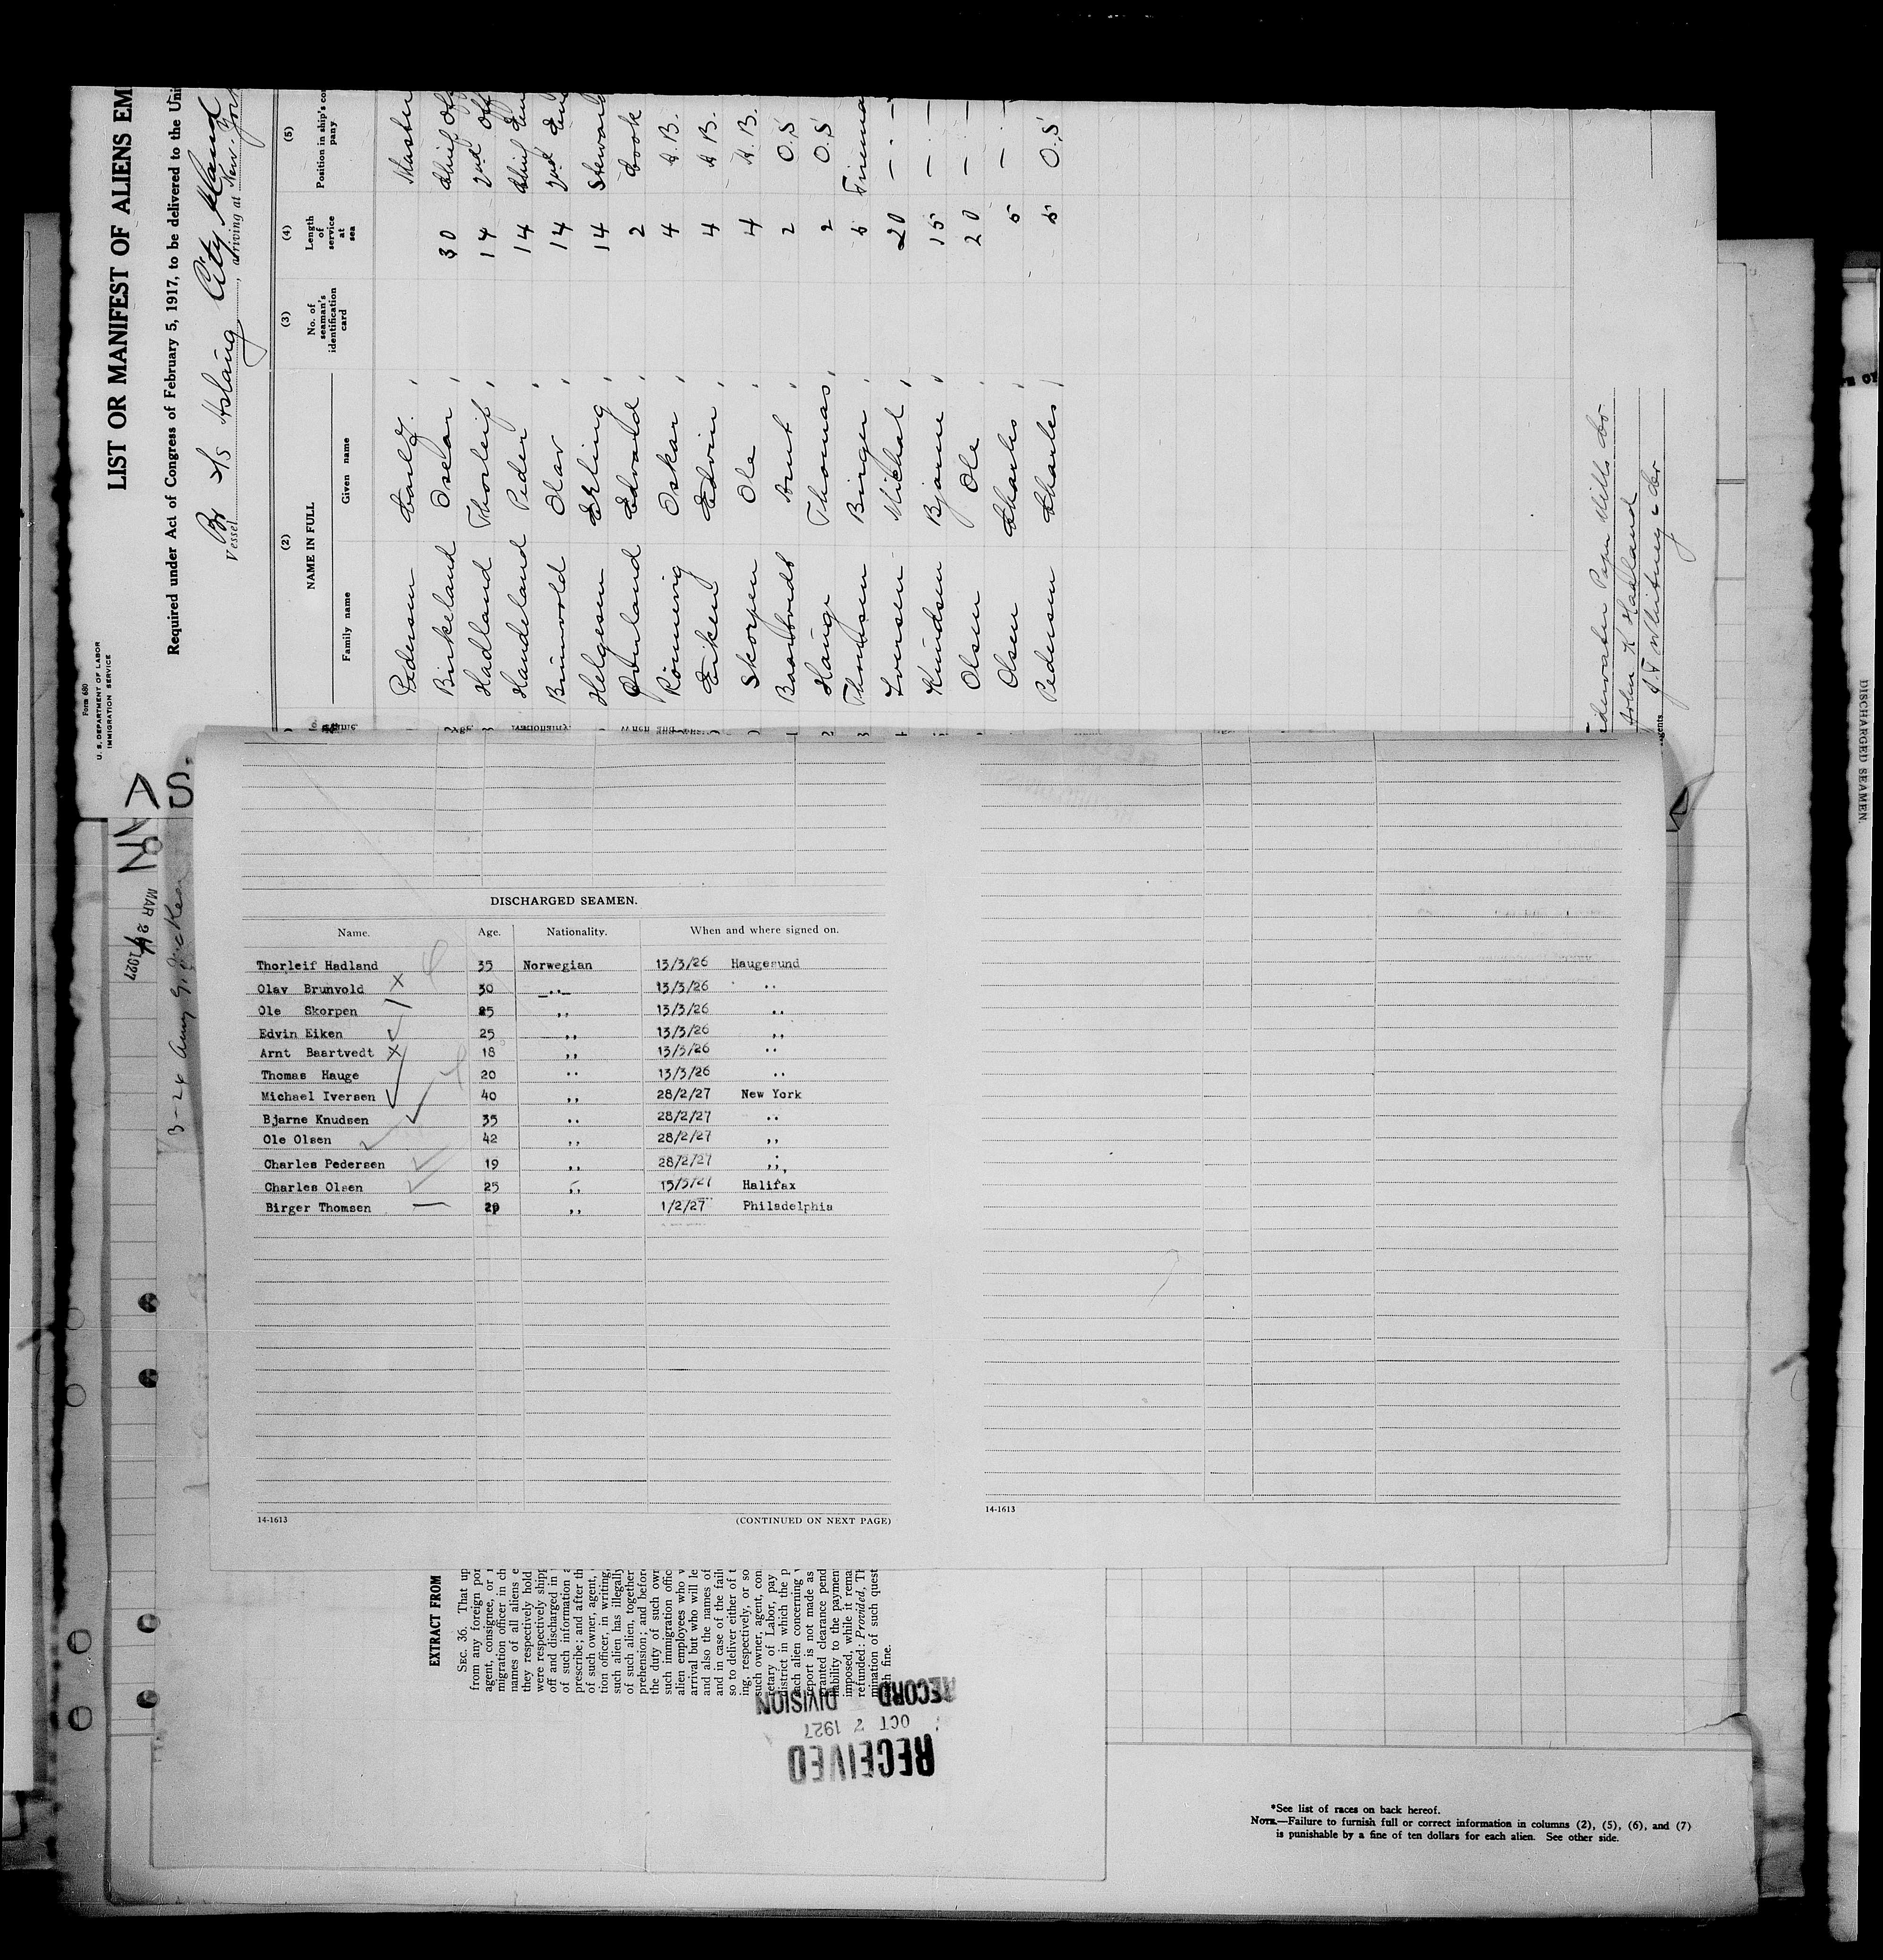 Form 680
U. S. DEPARTMENT OF LABOR
IMMIGRATION SERVICE
LIST OR MANIFEST OF ALIENS EM
Required under Act of Congress of February 5, 1917, to be delivered to the Uni
Vessel Br S/S Aslaug City Island
, arriving at New York
(2) (3) (4) (5)
NAME IN FULL No. of seaman's identification card Length of service at sea Position in ship's com pany
Family name Given name
Pedersen Carl J. Master
Birkeland Oscar 30 Chief Off
Hadland Thorleif 14 2nd Off
Handeland Peder 14 Chief Eng
Brunvold Olav 14 2nd Eng
Helgesen Erling 14 Steward
Edvard 2 Cook
Rönning Oskar 4 A. B.
Eiken Edvin 4 A. B.
Skorpen Ole 4 A. B.
Baartvedt Arnt 2 O.S
Hauge Thomas 2 O.S
Thomsen Birger 5 Fireman
Iversen Michal 20 — . —
Knudsen Bjarne 15 — . —
Olsen Ole 20 — . —
Olsen Charles 5 — . —
Pedersen Charles 5 O.S
Mills Co
John K Hadland
J. F Whitney & Co
gents
MAR 24 1927
3-24
DISCHARGED SEAMEN.
Name. Age. Nationality. When and where signed on.
Thorleif Hadland 35 Norwegian 13/3/26 Haugesund
Olav Brunvold 30 -..- 13/3/26 ..
Ole Skorpen 25 ,, 13/3/26 ..
Edvin Eiken 25 ,, 13/3/26 ,,
Arnt Baartvedt 18 ,, 13/3/26 ..
Thomas Hauge 20 .. 13/3/26 ..
Michael Iversen 40 ,, 28/2/27 New York
Bjarne Knudsen 35 .. 28/2/27 ..
Ole Olsen 42 ,, 28/2/27 ,,
Charles Pedersen 19 ,, 28/2/27 ,,
Charles Olsen 25 ,, 15/3/27 Halifax
Birger Thomsen 29 ,, 1/2/27 Philadelphia
14-1613 (CONTINUED ON NEXT PAGE)
14-1613
EXTRACT FROM
SEC. 36. That up
from any foreign por
agent, consignee, or
migration officer in ch
names of all aliens e
they respectively hold
were respectively shipp
off and discharged in
of such information a
prescribe; and after th
of such owner, agent,
tion officer, in writing,
such alien has illegally
of such alien, together
prehension; and before
the duty of such own
such immigration offic
alien employees who v
arrival but who will le
and also the names of
and in case of the fail
so to deliver either of t
ing, respectively, or so
such owner, agent, con
retary of Labor, pay
district in which the p
each alien concerning
report is not made as
granted clearance pend
liability to the paymen
imposed, while it rema
refunded: Provided, Th
mination of such quest
such fine.
RECEIVED
OCT 7 1927
RECORD DIVISION
*See list of races on back hereof.
NOTE.—Failure to furnish full or correct information in columns (2), (5), (6), and (7)
is punishable by a fine of ten dollars for each alien. See other side.
DISCHARGED SEAMEN.